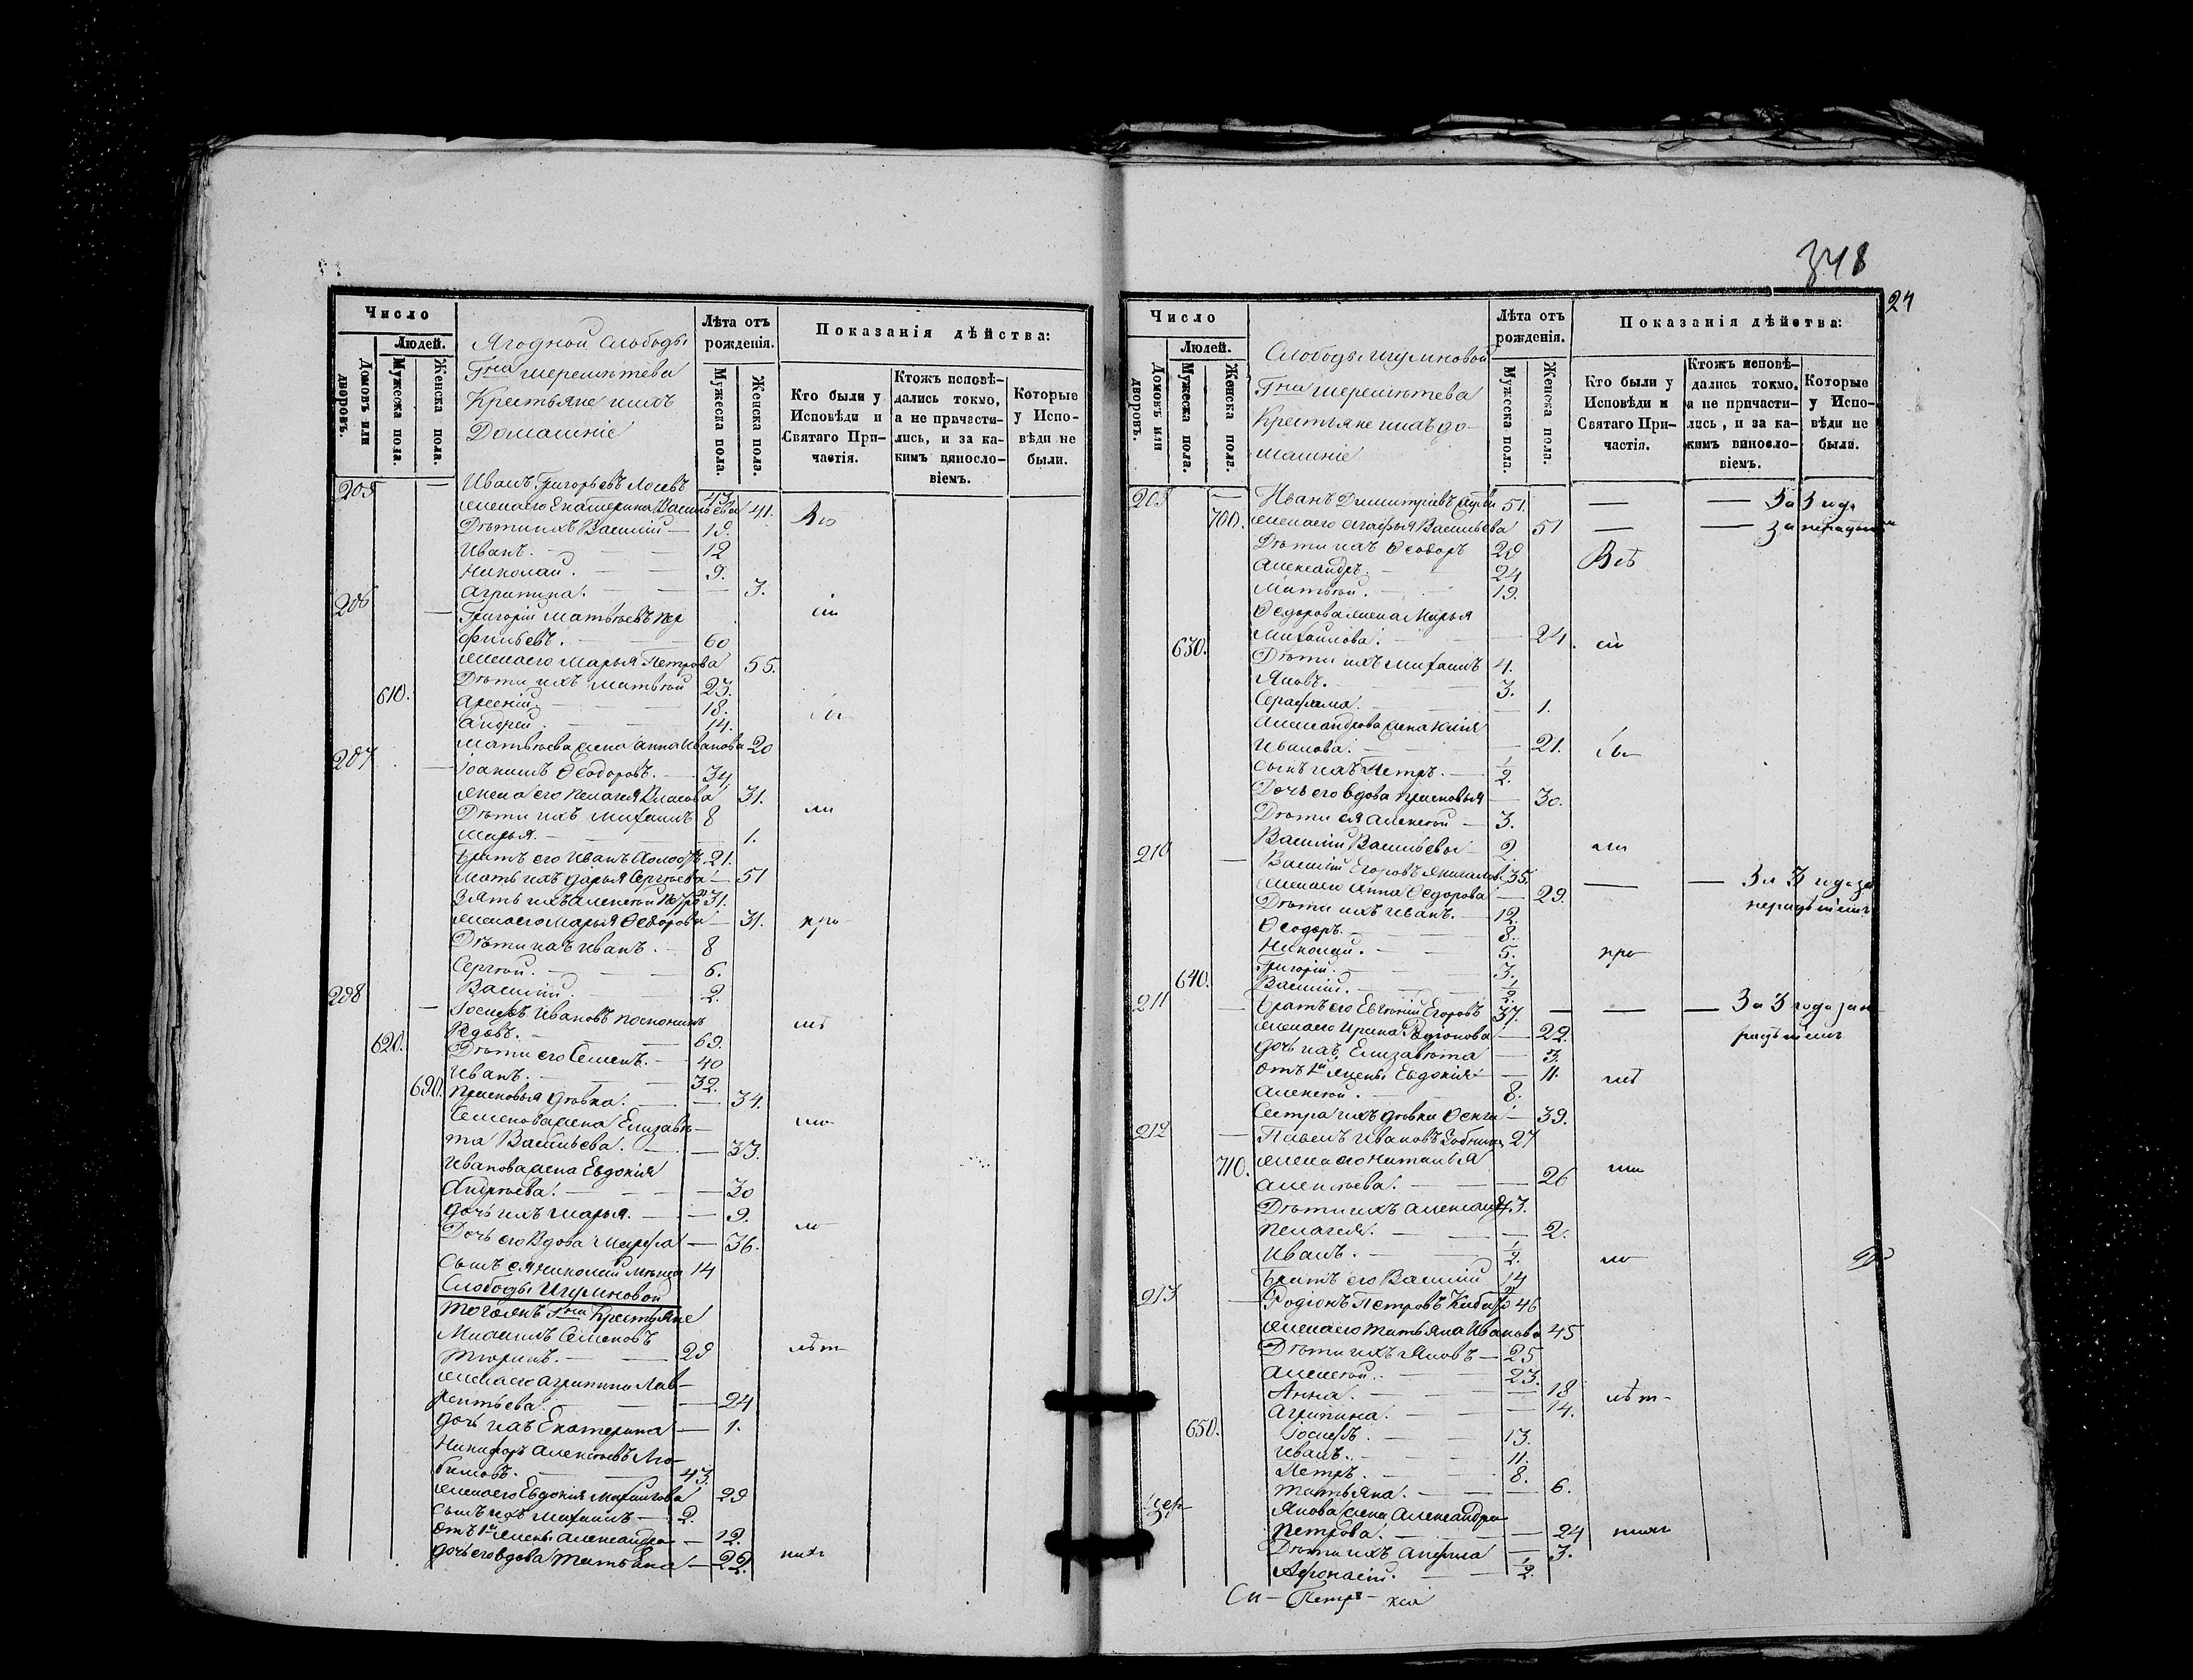 348
24
Число
Людей.
Домовъ или дворовъ.
Мужеска пола.
Женска пола.
Ягодной слободы
Гна Шереметева
Крестьяне и ихъ
Домашніе
Лѣта отъ рожденія.
Мужеска пола.
Женска пола.
Показанія дѣйства:
Кто были у Исповѣди и Святаго Причастія.
Ктожъ исповѣдались токмо, а не причастились, и за какимъ винословіемъ.
Которые у Исповѣди не были.
205 — Иванъ Григорьевъ Лосевъ 43.
жена его Екатерина Васильева 41. Всѣ
Дѣти ихъ Василій — 19.
Иванъ. — 12
Николай. — 9.
Агрипина. — 3.
206 — Григорій Матвѣевъ Пер
фильевъ. — 60
жена его Марья Петрова 55.
Дѣти ихъ Матвѣй 23.
610. Арсеній. — 18.
Андрей. — 14.
Матвѣева жена Анна Иванова 20
207 — Іоакимъ Ѳеодоровъ. — 34
жена его Пелагея Власова 31.
Дѣти ихъ Михаилъ 8
Марья. — 1.
Братъ его Иванъ 21.
Мать ихъ Дарья Сергѣева — 51
Зять ихъ Алексѣй 31.
жена его Марья Ѳедорова — 31.
Дѣти ихъ Иванъ. — 8
Сергѣй. — 6.
Василій. — 2.
208 — Іосифъ Ивановъ
вдовъ. — 69.
620. Дѣти его Семенъ. — 40
Иванъ. — 32.
690. Прасковья дѣвка. — 34.
Семенова жена Елизавѣ-
та Васильева. — 33.
Иванова жена Евдокія
Андреева. — 30
дочь ихъ Марья. — 9.
Дочь его Вдова Марфа — 36.
Сынъ ея Николай 14
Слободы Игумновой
того жъ Гна Крестьяне
Михаилъ Семеновъ
Тюринъ. — 29
жена его Агрипина Лав-
рентьева. — 24
дочь ихъ Екатерина — 1.
Никифоръ Алексѣевъ Лю-
бимовъ. — 43.
жена его Евдокія Михайлова 29
сынъ ихъ Михаилъ — 2.
отъ 1й жены Александра — 12.
дочь его вдова Татьяна — 22.
Число
Людей.
Домовъ или дворовъ.
Мужеска пола.
Женска пола.
Слободы Игумновой
Гна Шереметева
Крестьяне и ихъ до-
машніе
Лѣта отъ рожденія.
Мужеска пола.
Женска пола.
Показанія дѣйства:
Кто были у Исповѣди и Святаго Причастія.
Ктожъ исповѣдались токмо, а не причастились, и за какимъ винословіемъ.
Которые у Исповѣди не были.
209 — Иванъ Димитріевъ 51. — — За 3 года
700. жена его Агафья Васильева 51 — — за нерадѣніе
Дѣти ихъ Ѳеодоръ 29 Всѣ
Александръ. — 24
Матвѣй. — 19.
Ѳедорова жена Марья
Михайлова. — 24.
630. Дѣти ихъ Михаилъ 4.
Яковъ. — 3.
Серафима. — 1.
Александрова жена Юлія
Иванова. — 21.
сынъ ихъ Петръ. — 1/2
Дочь его вдова Прасковья — 30.
Дѣти ея Алексѣй — 3.
Василій Васильевы — 2.
210 — Василій Егоровъ 35. — — За 3 года за
жена его Анна Ѳедорова — 29. нерадѣніемъ
Дѣти ихъ Иванъ. — 12.
Ѳеодоръ. — 8.
Николай. — 5.
Григорій. — 3.
640. Василій. — 1/2
211 — Братъ его Евгеній Егоровъ 37. — — — За 3 года за не
жена его Ирина Родіонова — 22. радѣніемъ
дочь ихъ Елизавета — 3.
отъ 1й жены Евдокія — 11.
Алексѣй. — 8.
Сестра ихъ дѣвка — 39.
212 — Павелъ Ивановъ 27
710. жена его Наталья
Алексѣева. — 26
Дѣти ихъ Александръ 3.
Пелагея. — 2.
Иванъ. — 1/2
Братъ его Василій 14
213 — Родіонъ Петровъ 46
жена его Татьяна Иванова 45
Дѣти ихъ Яковъ — 25
Алексѣй. — 23.
Анна. — 18
Агрипина. — 14.
650. Іосифъ. — 13.
Иванъ. — 11.
Петръ. — 8.
Татьяна. — 6.
Якова жена Александра
Петрова. — 24
Дѣти ихъ Анфиса — 3.
Афонасій. — 1/2